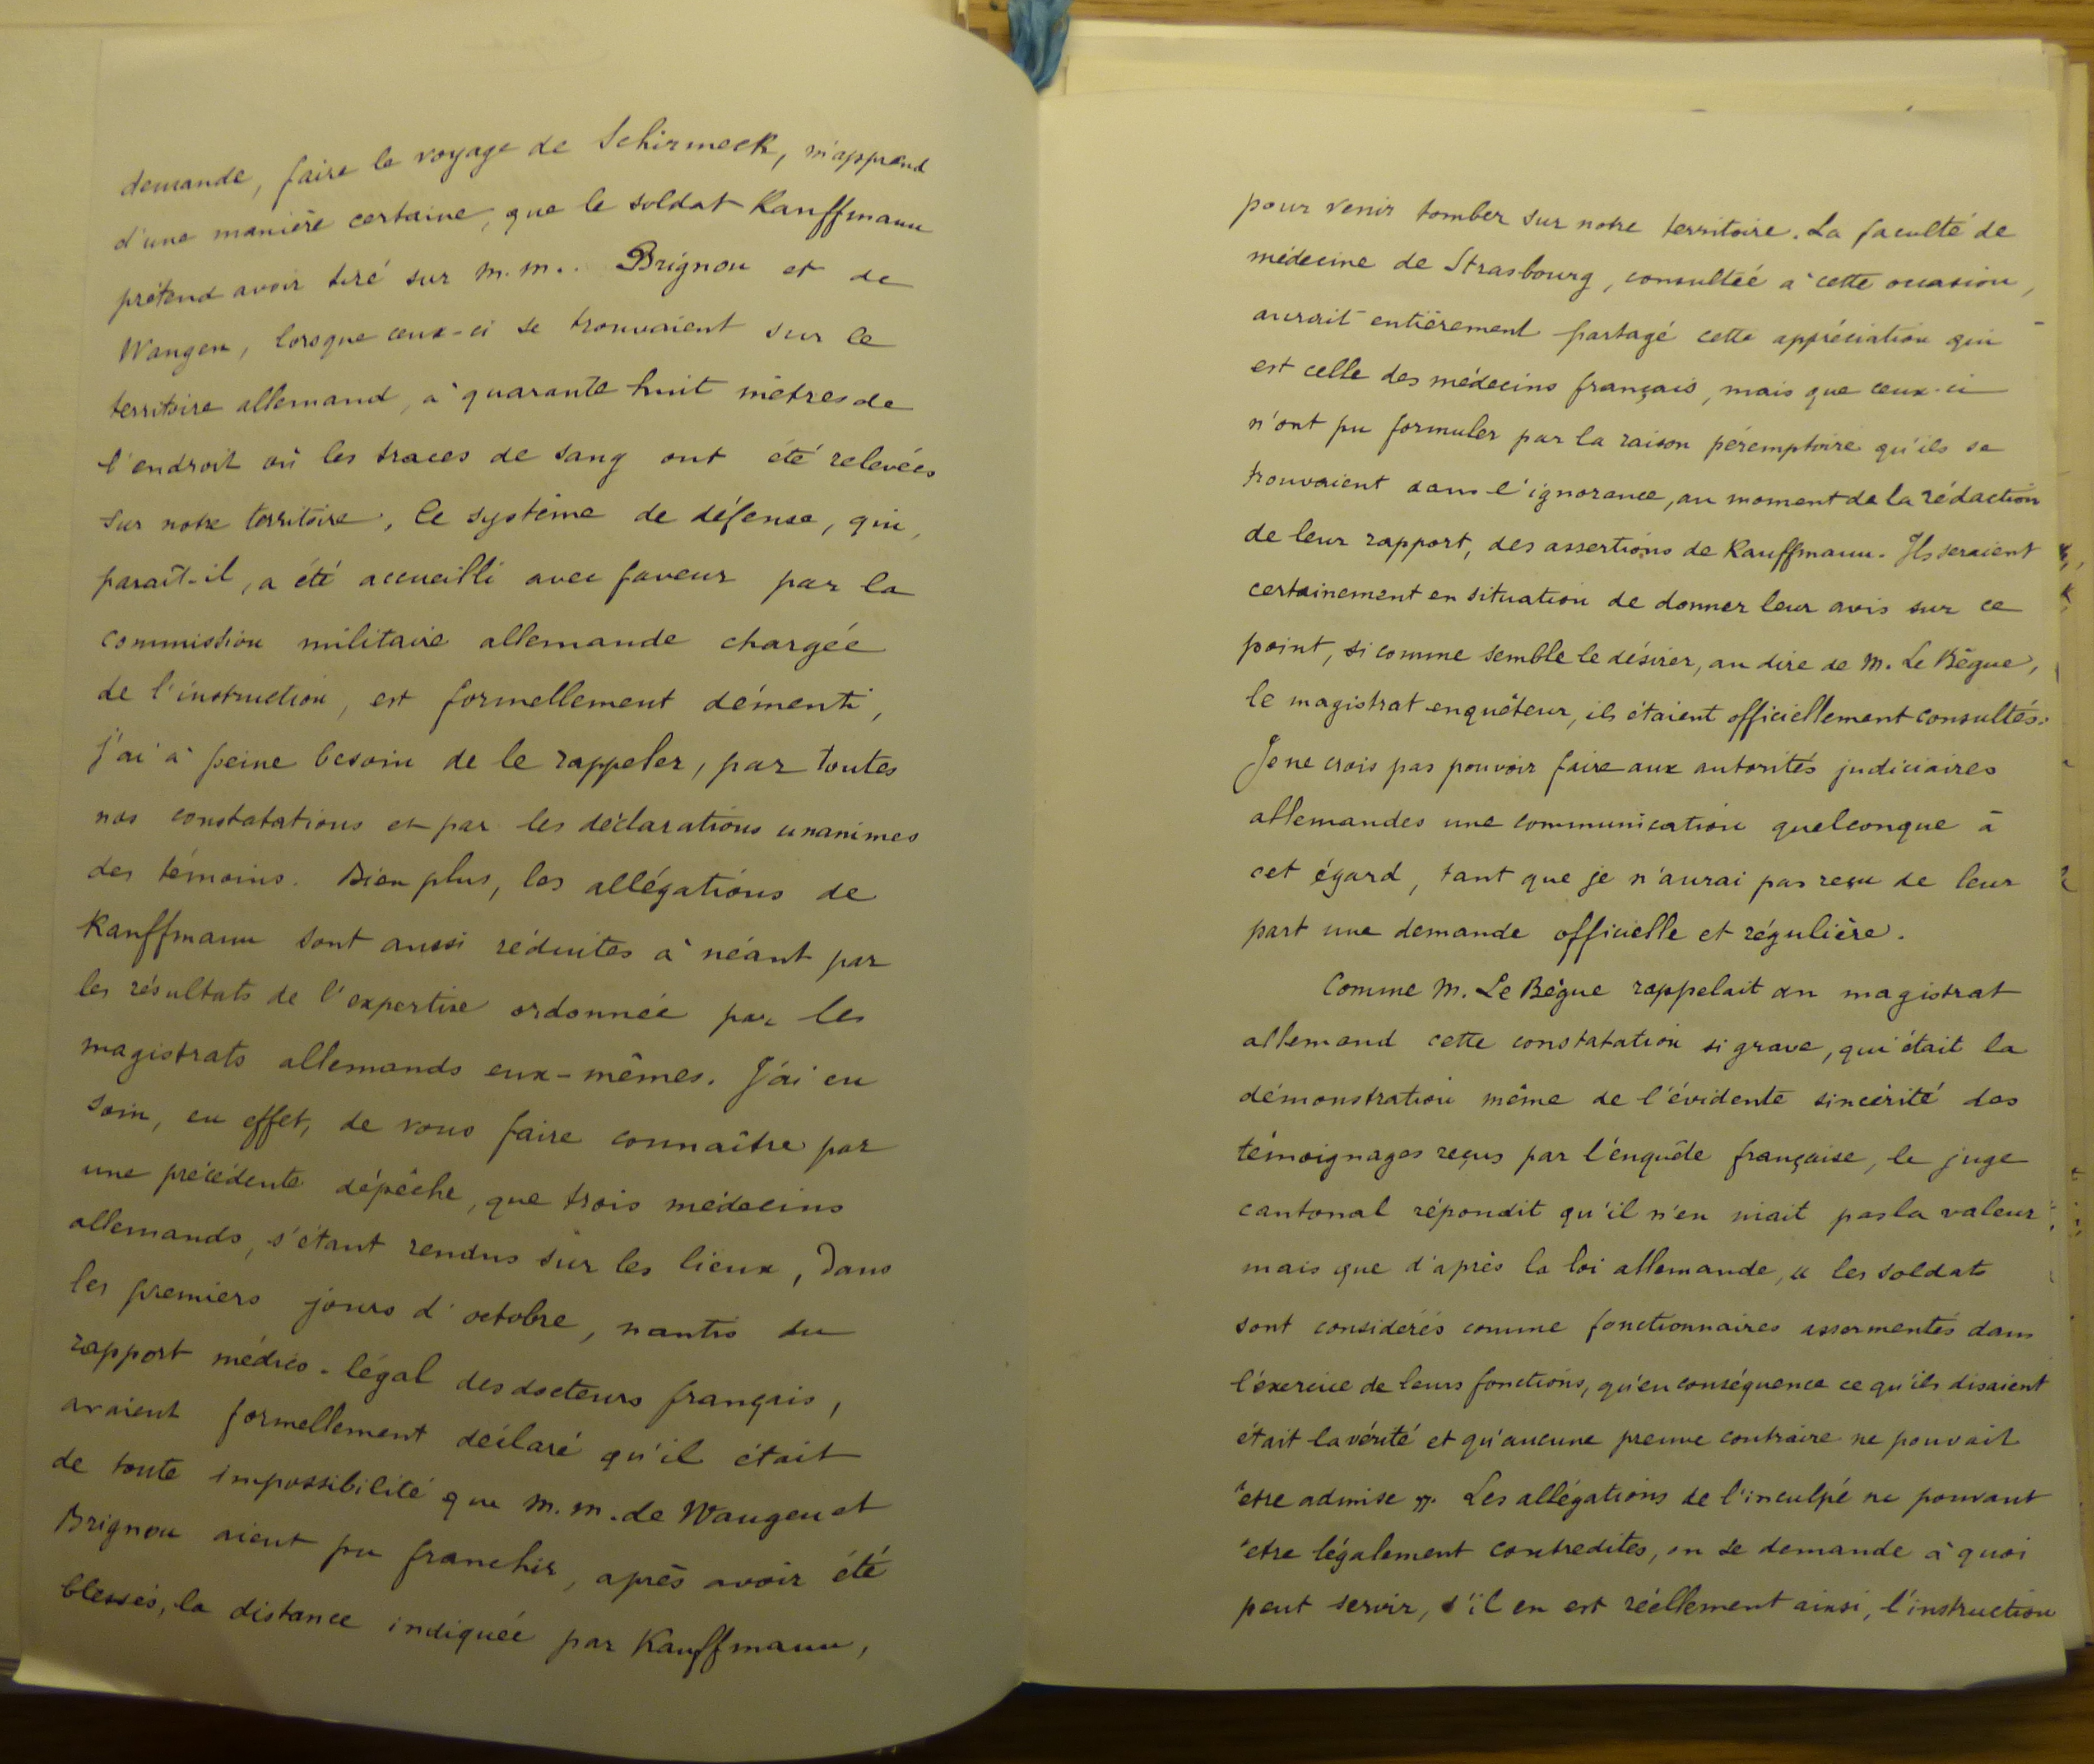 demande, faire le voyage de Schirmeck, m'apprend
d'une manière certaine, que le soldat Kauffmann
prétend avoir tiré sur M.M. Brignon et de
Wangen, lorsque ceux-ci se trouvaient sur le
territoire allemand, à quarante huit mètres de
l'endroit où les traces de sang ont été relevées
sur notre territoire. Ce système de défense, qui,
paraît-il, a été accueilli avec faveur par la
commission militaire allemande chargée
de l'instruction, est formellement démenti,
j'ai à peine besoin de le rappeler, par toutes
nos constatations et par les déclarations unanimes
des témoins. Bien plus, les allégations de
Kauffmann sont aussi réduites à néant par
les résultats de l'expertise ordonnée par les
magistrats allemands eux-mêmes. J'ai eu
soin, en effet, de vous faire connaître par
une précédente dépêche, que trois médecins
allemands, s'étant rendus sur les lieux, dans
les premiers jours d'octobre, nantis du
rapport médico-légal des docteurs français,
avaient formellement déclaré qu'il était
de toute impossibilité que M.M. de Wangen et
Brignon aient pu franchir, après avoir été
blessés, la distance indiquée par Kauffmann,
pour venir tomber sur notre territoire. La faculté de
médecine de Strasbourg, consultée à cette occasion,
aurait entièrement partagé cette appréciation qui
est celle des médecins français, mais que ceux-ci
n'ont pu formuler par la raison péremptoire qu'ils se
trouvaient dans l'ignorance, au moment de la rédaction
de leur rapport, des assertions de Kauffmann. Ils seraient
certainement en situation de donner leur avis sur ce
point, si comme semble le désirer, au dire de M. Le Bègue,
le magistrat enquêteur, ils étaient officiellement consultés.
Je ne crois pas pouvoir faire aux autorités judiciaires
allemandes une communication quelconque à
cet égard, tant que je n'aurai pas reçu de leur
part une demande officielle et régulière.
Comme M. Le Bègue rappelait au magistrat
allemand cette constatation si grave, qui était la
démonstration même de l'évidente sincérité des
témoignages reçus par l'enquête française, le juge
cantonal répondit qu'il n'en niait pas la valeur
mais que d'après la loi allemande, « les soldats
sont considérés comme fonctionnaires assermentés dans
l'exercice de leurs fonctions, qu'en conséquence ce qu'ils disaient
était la vérité et qu'aucune preuve contraire ne pouvait
être admise ». Les allégations de l'inculpé ne pouvant
être légalement contredites, on se demande à quoi
peut servir, s'il en est réellement ainsi, l'instruction